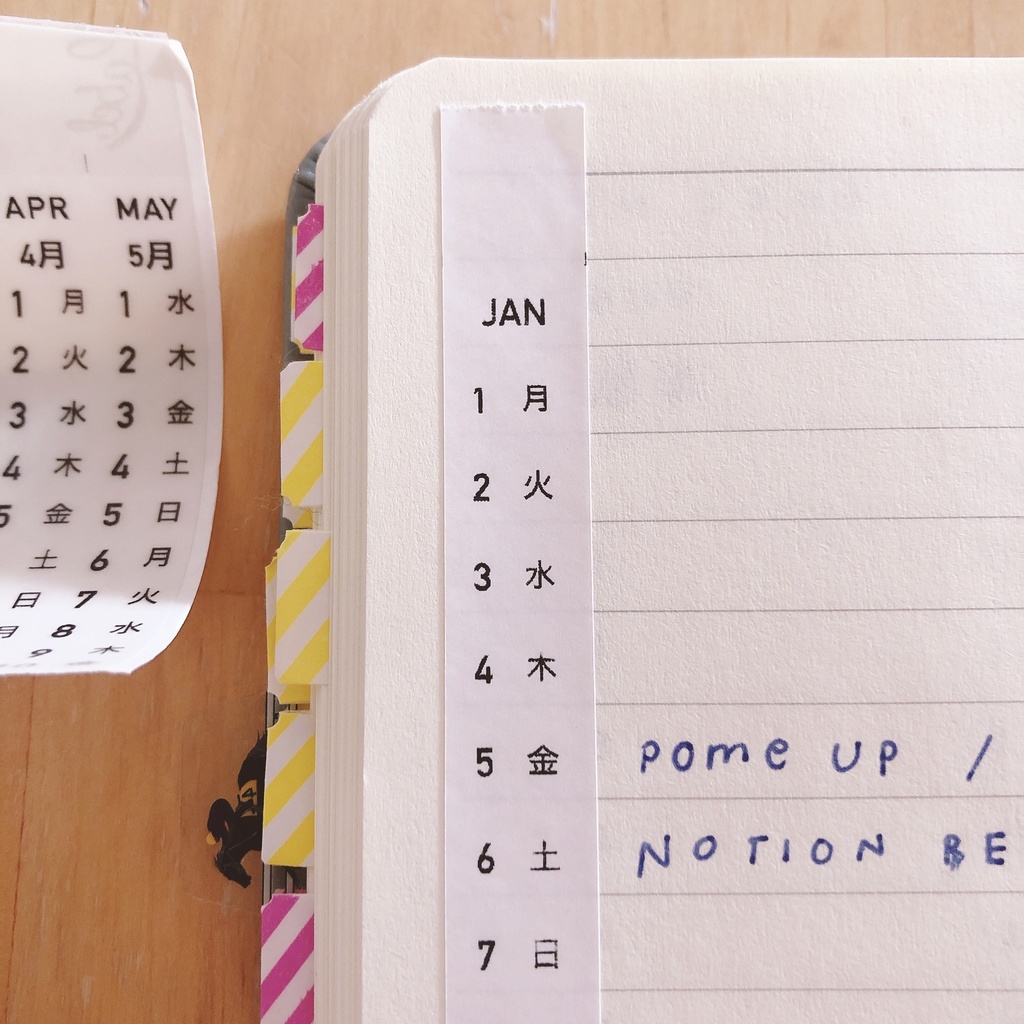 APR MAY
4月 5月
1 月 1 水
2 火 2 木
3 水 3 金
4 木 4 土
5 金 5 日
土 6 月
日 7 火
月 8 水
9 木
JAN
1 月
2 火
3 水
4 木
5 金 pome up /
6 土 NOTION BE
7 日